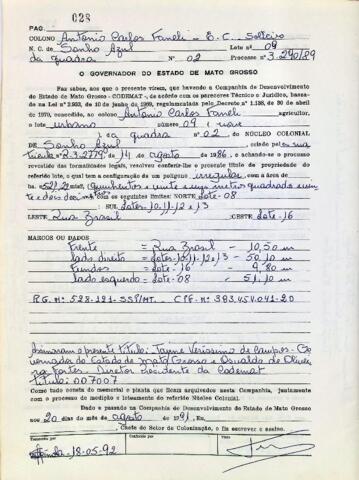 028
PAG.
COLONO Antonio Carlos Faneli - E.C. Solteiro
N. C. de Sonho Azul Lote nº 09
da quadra Nº 02 Processo nº 3.290/89
O GOVERNADOR DO ESTADO DE MATO GROSSO
Faz saber, aos que o presente virem, que havendo a Companhia de Desenvolvimento
do Estado de Mato Grosso - CODEMAT -, de acordo com os pareceres Técnico e Jurídico, basea-
do na Lei nº 2.903, de 10 de junho de 1969, regulamentada pelo Decreto nº 1.138, de 30 de abril
de 1970, concedido, ao colono Antonio Carlos Faneli agricultor,
o lote urbano número 09 ( nove
) da quadra nº 02 do NÚCLEO COLONIAL
DE Sonho Azul, criado pela sua
2.3.2779, 11, agosto 1986, e achando-se o processo
revestido das formalidades legais, resolveu conferir-lhe o presente título de propriedade do
referido lote, o qual tem a configuração de um polígono irregular, com a área de
521,21 quinhentos e vinte e um metros quadrados
com os seguintes limites: NORTE lote-08
SUL lotes 10.11.12 e 13
LESTE Rua Brasil OESTE lote-16
MARCOS OU DADOS
Frente = Rua Brasil - 10,50 m
lado direito = lotes-10.11.12 e 13 - 50,10 m
Fundos = lote-16 - 9,80 m
lado esquerdo = lote-08 - 51,10 m
R.G. Nº: 528.121-SSP/MT. CPF-Nº: 393.454.041-20
Assinaram o presente titulo: Jayme Verissimo de Campos - Go
vernador do Estado de Mato Grosso e Osvaldo de Olivei
ra Fortes - Diretor Presidente da Codemat
titulo: 007007
Como tudo consta do memorial e planta que ficam arquivados nesta Companhia, juntamente
com o processo de medição e loteamento do referido Núcleo Colonial.
Dado e passado na Companhia de Desenvolvimento do Estado de Mato Grosso
aos 20 dias do mês de agosto de 1991. Eu,
Chefe do Setor de Colonização, o fiz escrever e assino.
Transcrito por
Conferido por
Visto
18-05-92